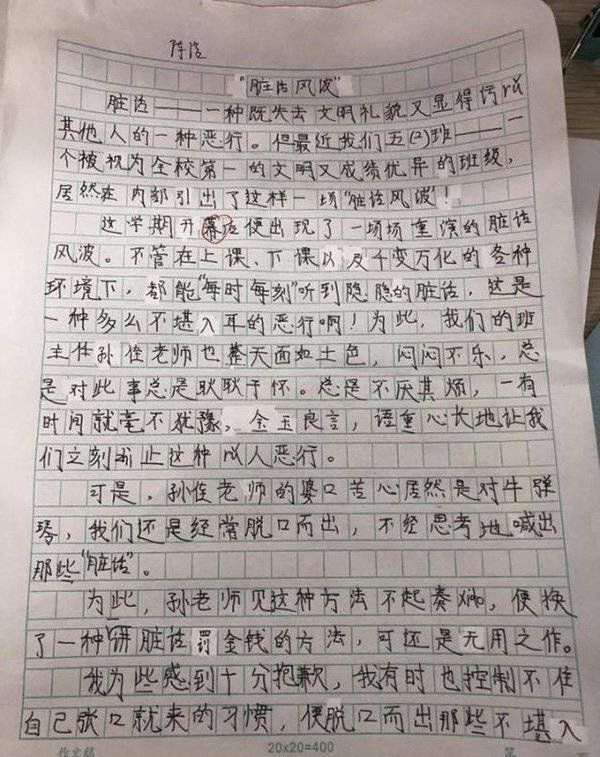 陈浩
“脏话风波”
脏话——一种既失去文明礼貌又显得污rǔ
其他人的一种恶行。但最近我们五(2)班——一
个被视为全校第一的文明又成绩优异的班级，
居然在内部引出了这样一场“脏话风波”！
这学期开幕后便出现了一场场重演的脏话
风波。不管在上课、下课以及千变万化的各种
环境下，都能“每时每刻”听到隐隐的脏话，这是
一种多么不堪入耳的恶行啊！为此，我们的班
主任孙佳老师也整天面如土色，闷闷不乐，总
是对此事总是耿耿于怀。总是不厌其烦，一有
时间就毫不犹豫，金玉良言，语重心长地让我
们立刻停止这种以人恶行。
可是，孙佳老师的婆口苦心居然是对牛弹
琴，我们还是经常脱口而出，不经思考地喊出
那些“脏话”。
为此，孙老师见这种方法不起奏效，便换
了一种讲脏话罚金钱的方法，可还是无用之作。
我为些感到十分抱歉，我有时也控制不住
自己张口就来的习惯，便脱口而出那些不堪入
作文稿 20x20=400 第 页